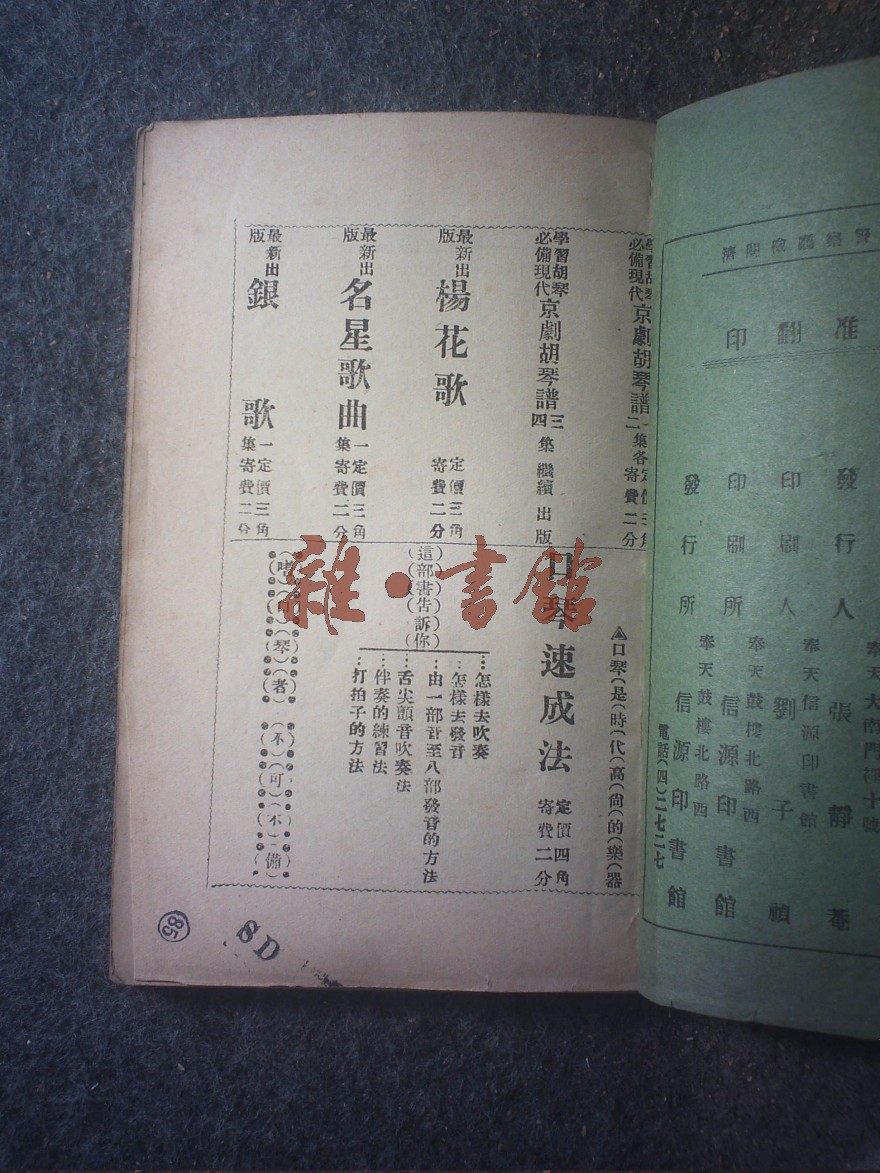 准翻印
發行人 張靜菴
奉天大南門裡十號
印刷人 劉子禎
奉天信源印書館
印刷所 信源印書館
奉天鼓樓北路西
發行所 信源印書館
奉天鼓樓北路西
電話(四)二七二七
學習胡琴必備現代 京劇胡琴譜 一二集 各定價三角 寄費二分
學習胡琴必備現代 京劇胡琴譜 三四集 繼續出版
最新出版 楊花歌 定價三角 寄費二分
最新出版 名星歌曲 一集 定價三角 寄費二分
最新出版 銀歌 一集 定價三角 寄費二分
口琴(是(時(代(高(尙(的(樂(器
口琴速成法 定價四角 寄費二分
(這部書告訴你)
…怎樣去吹奏
…怎樣去發音
…由一部音至八部發音的方法
…舌尖顫音吹奏法
…伴奏的練習法
…打拍子的方法
(琴)(者)(不)(可)(不)(備)
雜·書館
85
SD